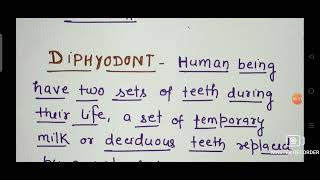 DIPHYODONT - Human being
have two sets of teeth during
their life, a set of temporary
milk or deciduous teeth replaced
RECORDER